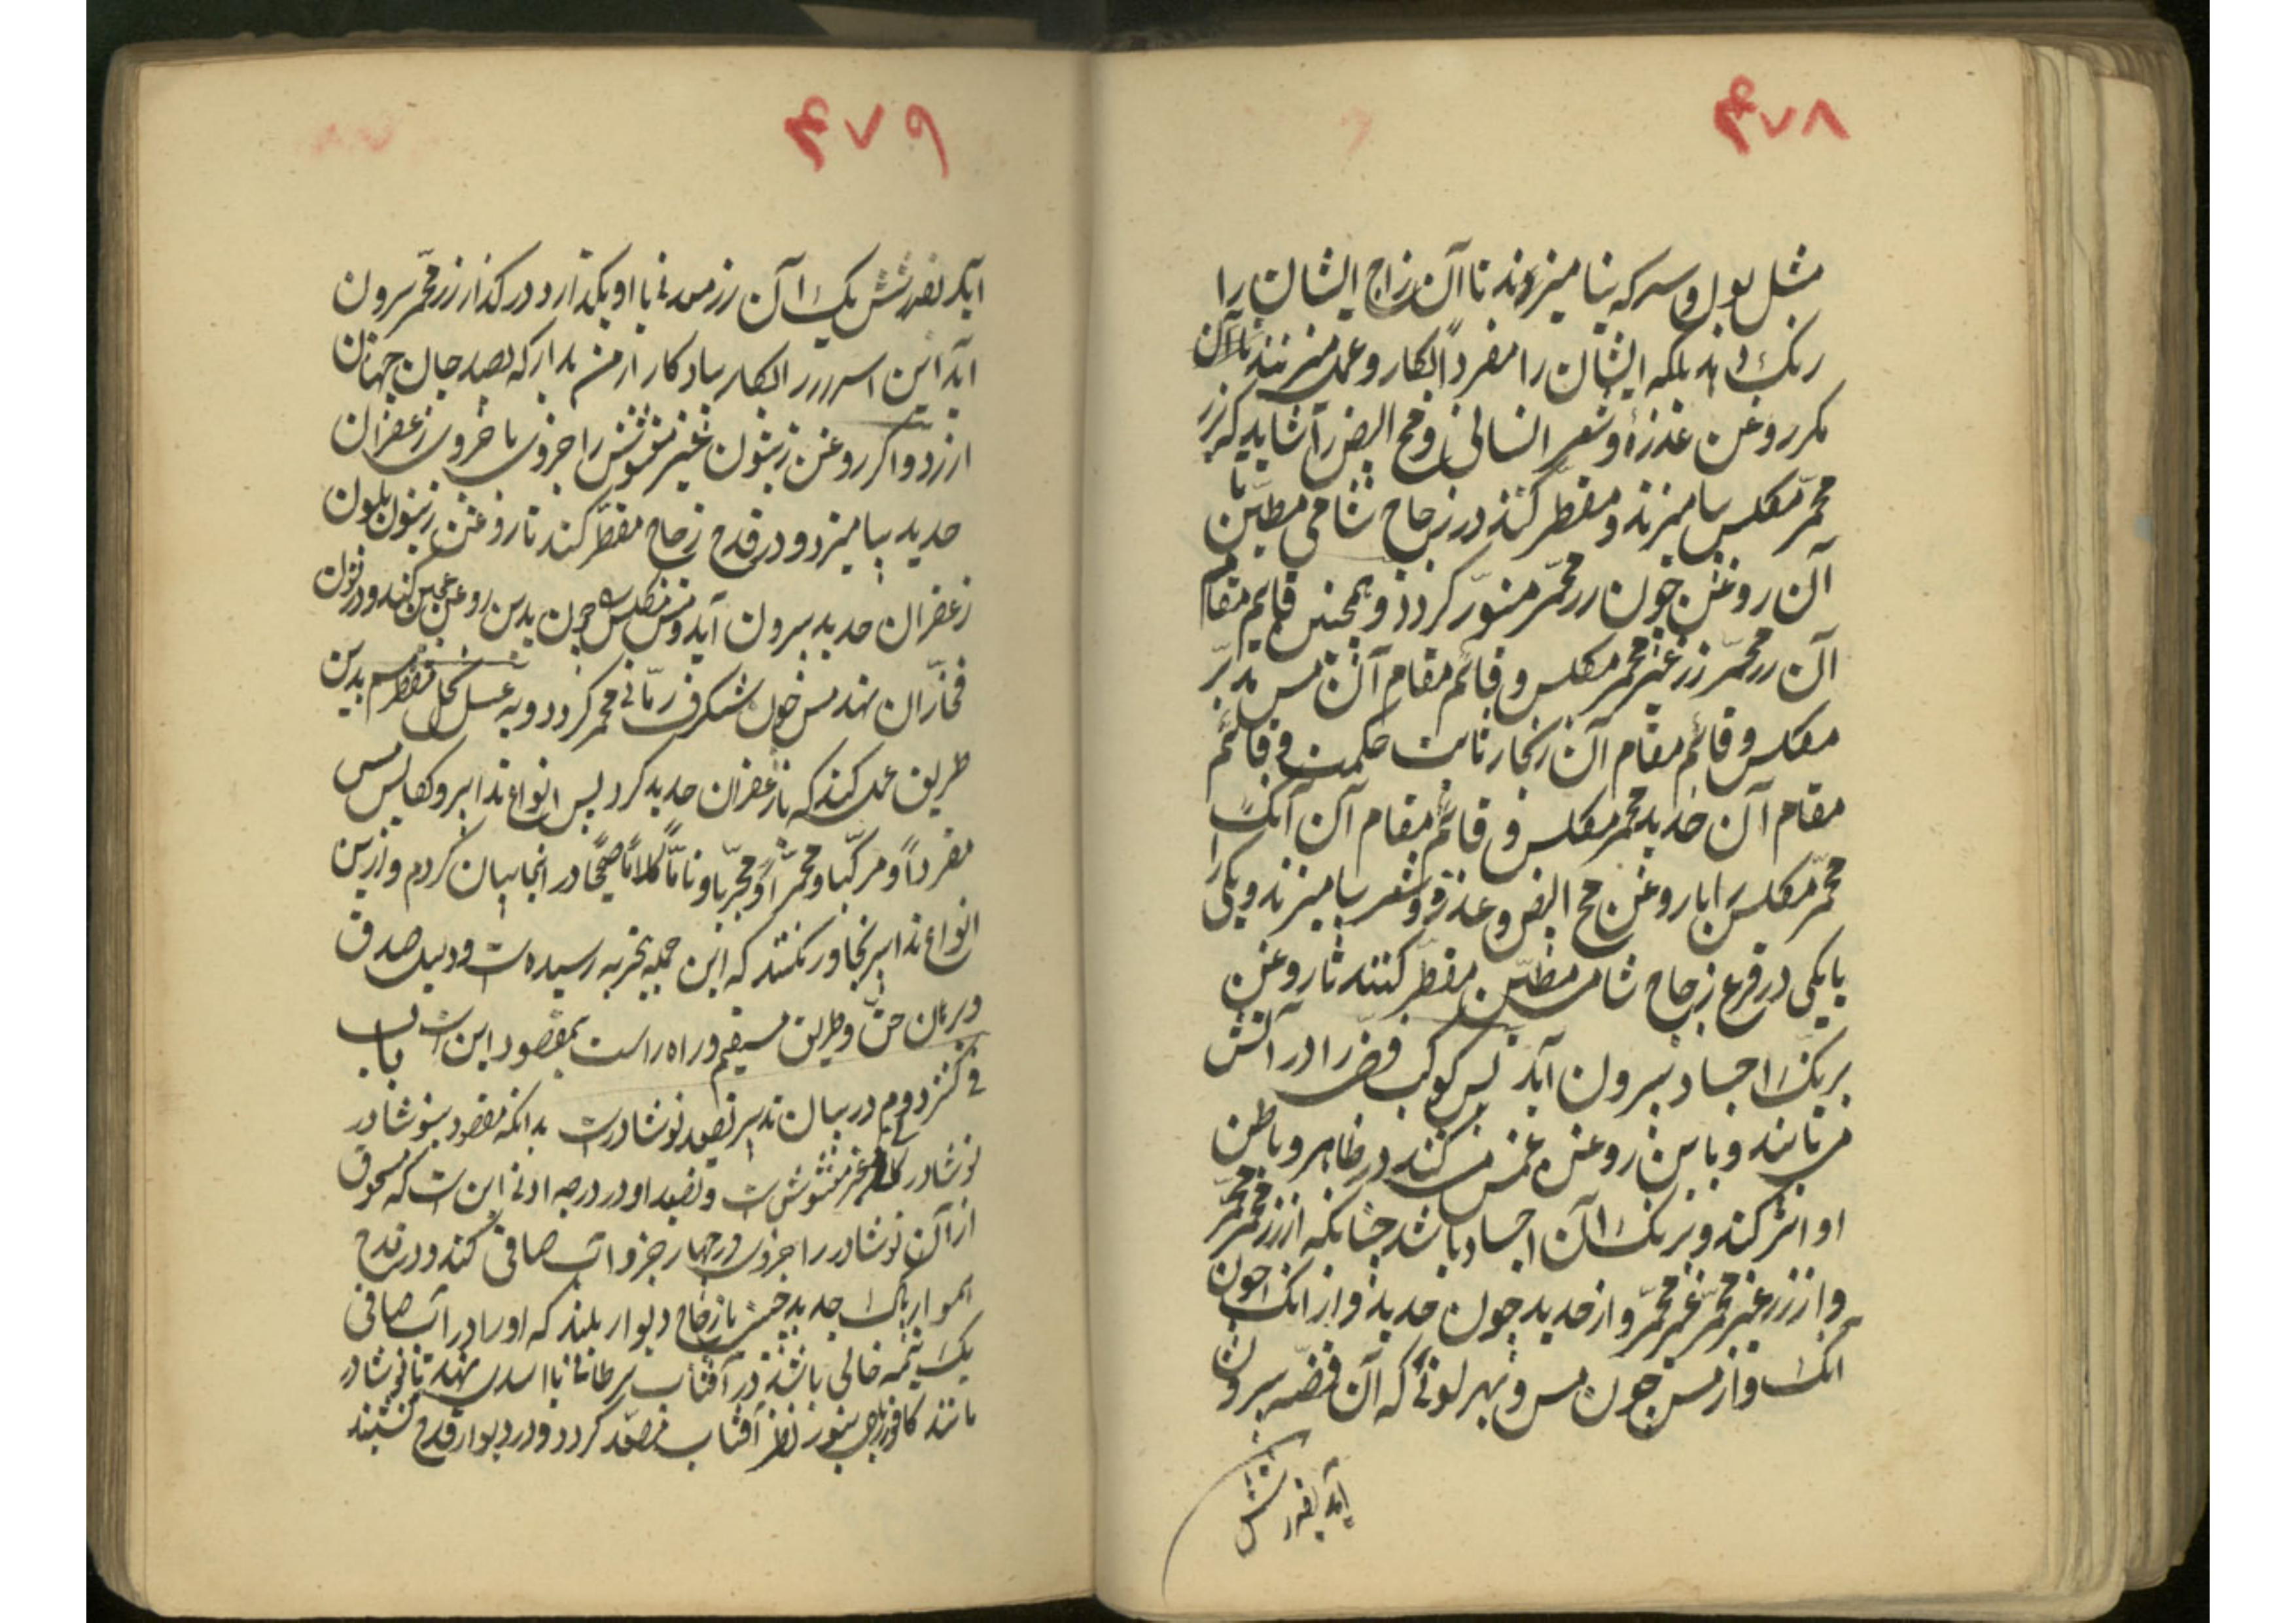 ۴۷۸
مثل بول و سرکه بیامیزند تا آن زاج ایشان را
رنک دهد بلکه ایشان را مفرداً بکار و عمل میبرند تا آن
مکرر روغن عذره و شعر انسانی و مح البیض را شاید که زر
محمّر مکلس بیامیزند و مقطر کنند در زجاج شامی مطیّن تا
آن روغن چون زر محمّر منوّر کردد و همچنین قایم مقام
آن زر محمّر زر غیر محمّر مکلس و قائم مقام آن مس مدبّر
مکلس و قائم مقام آن زنجار ثابت حکمت و قائم
مقام آن حدید محمّر مکلس و قائم مقام آن آنک
محمّر مکلس را با روغن مح البیض و عذره و شعر بیامیزند و یکی را
با یکی در قرع زجاج شامی مطیّن مقطّر کنند تا روغن
برنک اجساد بیرون آید پس کوکب فضه را در آتش
می تابند و باین روغن غمس میکنند در ظاهر و باطن
او اثر کند و برنک آن اجساد باشد چنانکه از زر محمّر محمّر
و از زر غیر محمّر غیر محمّر و از حدید چون حدید و از آنک چون
آنک و از مس چون مس و بهر لونی که آن فضّه بیرون
آید بقدرش
۴۷۹
آید بقدرش یک آن زر معدنی با او بکدازد و در کداز زر محمّر بیرون
آید این اسرار را بکار بیادکار از من بدار که بصد جان جهان
ارزد و اکر روغن زیتون غیر مغشوش را جزوی با جزوی زعفران
حدید بیامیزد و در قدح زجاج مقطّر کند تا روغن زیتون بلون
زعفران حدید بیرون آید و مس مکلس چون بدین روغن عجین کنند و در تون
فخّاران نهند مس چون شنکرف رمّانی محمّر کردد و به عسل نحل مقطر هم بدین
طریق عمل کنند که با زعفران حدید کرد پس انواع تدابیر و تکالیس مس
مفرداً و مرکّبا و محمّراً و مجرّبا و تامّاً کلاماً صحیحا در اینجا بیان کردم و ازین
انواع تدابیر تجاور نکنند که این جمله بتجربه رسیده است و دلیل صدق
و برهان حقّ و طریق مستقیم و راه راست بمقصود این است باب
فی کنز دوم در بیان تدبیر تصعید نوشادرست بدانکه مقصود بنوشادر
نوشادر کانی غیر مغشوش است و تصعید او در درجه ادنی این است که مسحوق
از آن نوشادر را جزوی در چهار جزو آب صافی کند و در قدح
هموار پاک جدید چینی یا زجاج دیوار بلند که اورا در آب صافی
یک نیمه خالی باشد در آفتاب سرطانی یا اسدی نهد تا نوشادر
مانند کافور ریاحی بنور نظر آفتاب مصعّد کردد و در دیوار قدح نشیند